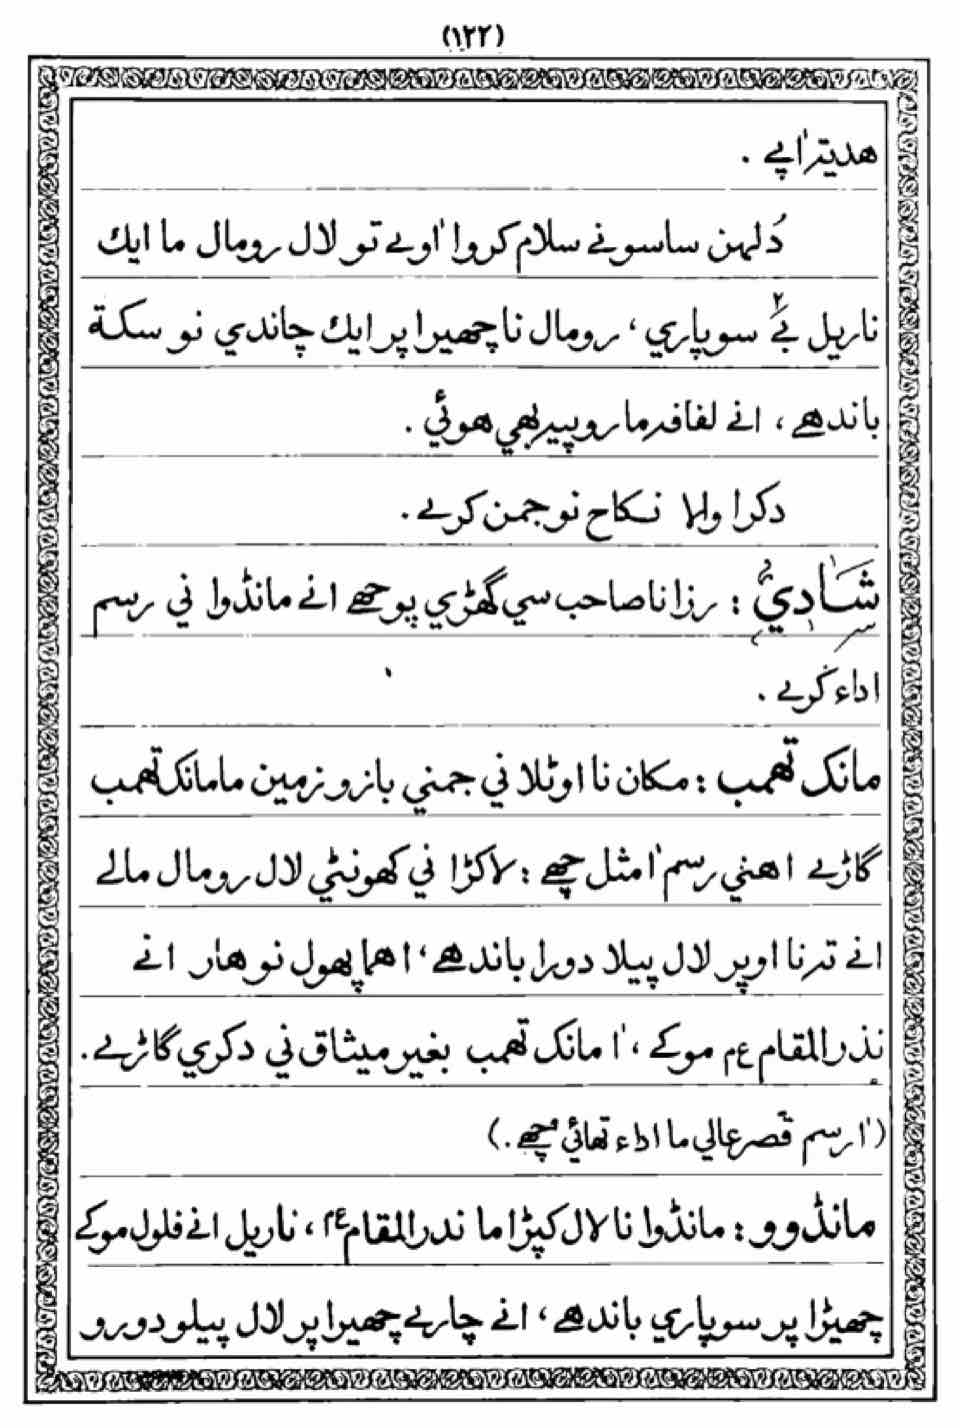 (١٢٢)
هديتہ اٰپے .
دُلہن ساسو نے سلام کروا اٰوے تو لال رومال ما ايك
ناريل بے۲ سوپاري، رومال نا چھيرا پر ايك چاندي نو سكة
باندھے، انے لفافہ ما روپيہ بھي هوئي .
دكرا والا نكاح نو جمن كرے .
شَادِيْ : رزا نا صاحب سي گھڑي پوچھے انے مانڈوا ني رسم
اداء كرے .
مانک تھمب : مكان نا اوٹلا ني جمني بازو زمين ما مانک تھمب
گاڑے اهني رسم اٰمثل چھے : لاكڑا ني كھونٹي لال رومال مالے
انے تہ نا اوپر لال پيلا دورا باندھے، اهما پھول نو هار انے
نذر المقام ع م موكے، اٰ مانک تھمب بغير ميثاق ني دكري گاڑے .
(اٰ رسم قصر عالي ما اداء تھائي چھے .)
مانڈوو : مانڈوا نا لال كپڑا ما نذر المقام ع م، ناريل انے فلول موكے
چھيڑا پر سوپاري باندھے، انے چارے چھيرا پر لال پيلو دورو